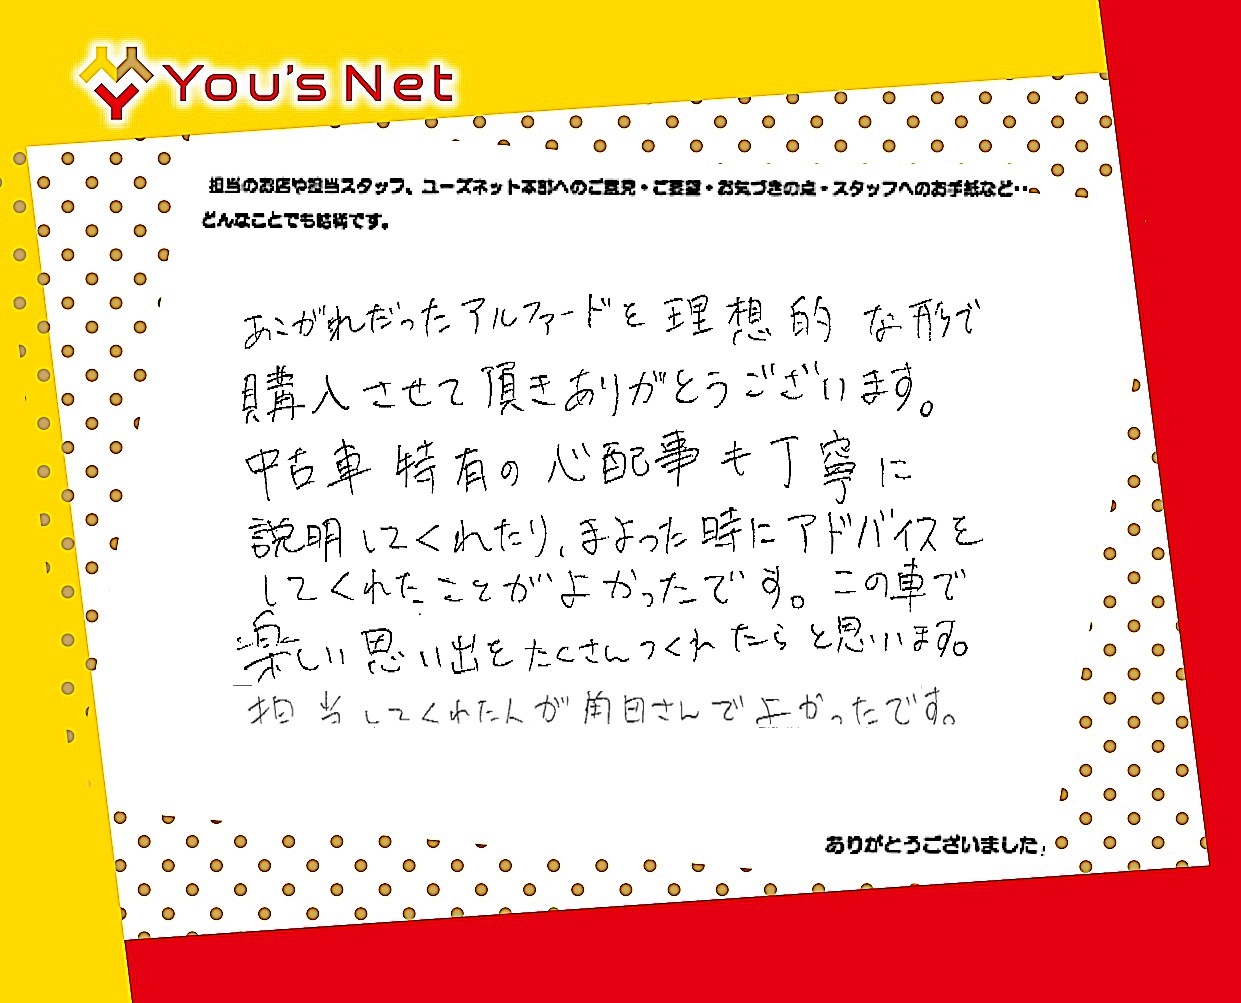 You's Net
担当のお店や担当スタッフ、ユーズネット本部へのご意見・ご要望・お気づきの点・スタッフへのお手紙など‥
どんなことでも結構です。
あこがれだったアルファードを理想的な形で
購入させて頂きありがとうございます。
中古車特有の心配事も丁寧に
説明してくれたり、まよった時にアドバイスを
してくれたことがよかったです。この車で
楽しい思い出をたくさんつくれたらと思います。
担当してくれた人が角田さんでよかったです。
ありがとうございました